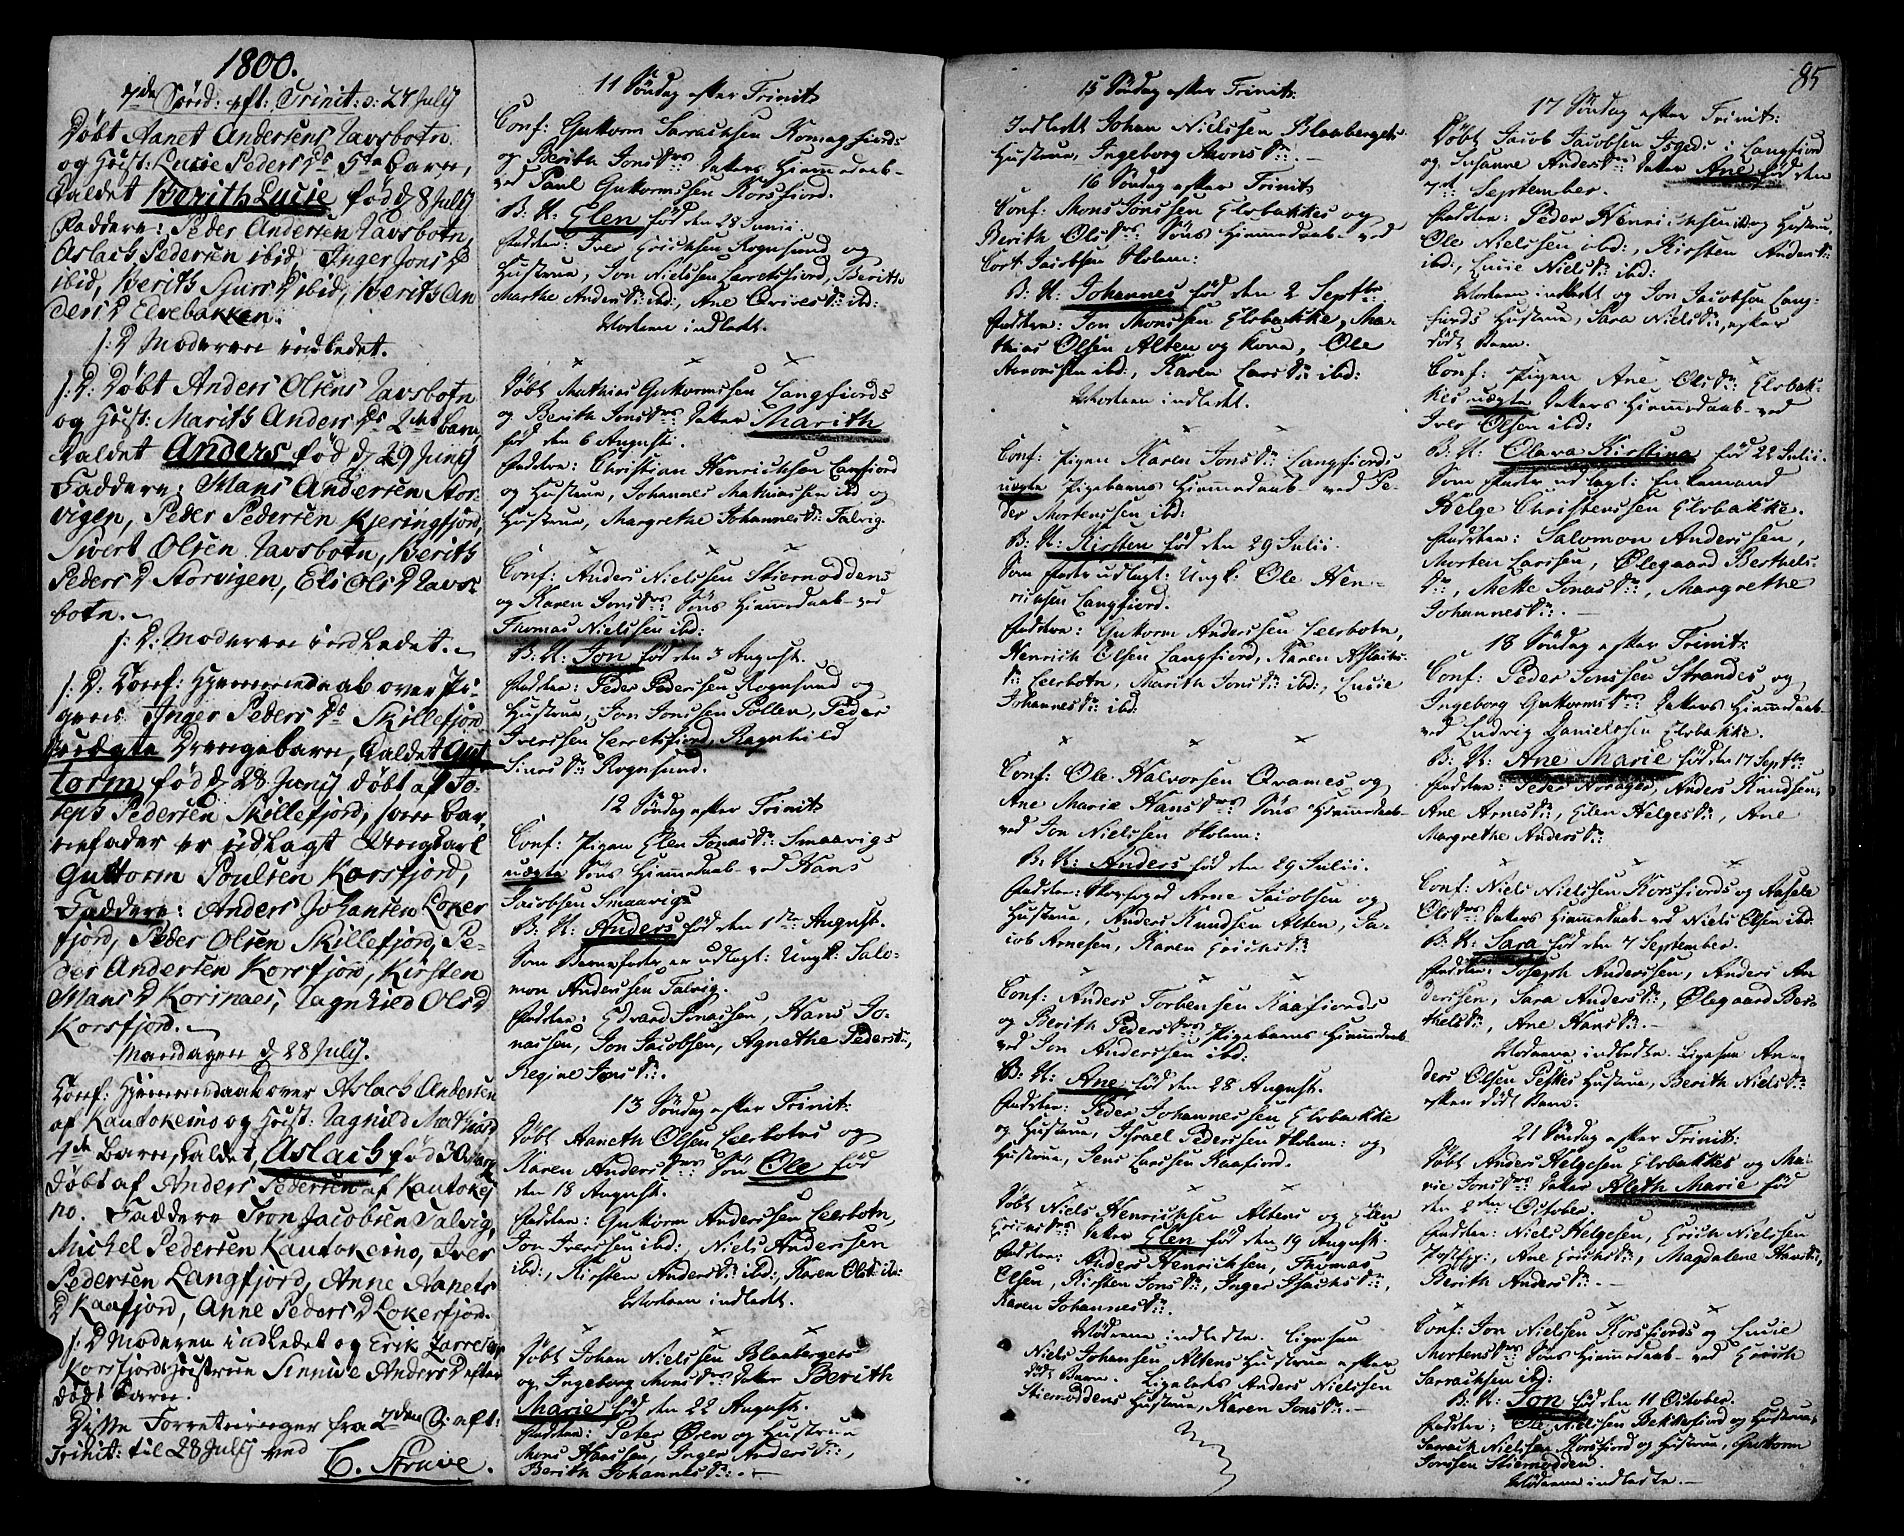 1800.
7de Sønd: eft: Trinit: d: 27 July
Døbt Aanet Andersens Navsbotn
og Hust: Lucie Peders Ds 5te Barn,
kaldet Berith Lucie, fød d 8 July
Faddere: Peder Andersen Navsbotn,
Aslach Pedersen ibid, Inger Jons D
ibid, Berith Siurs D ibid, Berith An
ders D Elvebakken.
s: D Moderen indledet.
s: D: Døbt Anders Olsens Navsbotn
og Hust: Marith Anders Ds 2det Barn,
kaldet Anders fød d 29 Juny
Faddere: Mans Andersen Stor-
vigen, Peder Pedersen Kieringfjord,
Sivert Olsen Navsbotn, Berith
Peders D Storvigen, Eli Ols D Navs-
botn.
s: D: Moderen indledet.
s: D: Conf: Hjemmedaab over Pi-
gens Inger Peders Ds Skillefjord
uægte Drengebarn, kaldet Gut
torm, fød d 28 Juny døbt af Jo-
seph Pedersen Skillefjord, som Bar-
nefader er udlagt Ungkarl
Guttorm Poulsen Korsfjord,
Faddere: Anders Johansen Loker
fjord, Peder Olsen Skillefjord, Pe-
der Andersen Korsfjord, Kirsten
Mans D Korsnæs, Ragnhild Ols D
Korsfjord.
Mandagen d 28 July.
Conf: Hjemmedaab over Aslach Andersen
af Kautokeino og Hust: Ragnild Mathisd
4de Barn, kaldet, Aslach fød 30
døbt af Anders Pedersen af Kautokei
no. Faddere Tron Jacobsen Talvig,
Michel Pedersen Kautokeino, Iver
Pedersen Langfjord, Anne Aanets
D Kaafjord, Anne Peders D Lokerfjord.
s: D Moderen indledet og Erik
Korsfjords Hustrue Sinnive Anders D efter
død Barn.
Disse Forretninger fra 2den S: aft:
Trinit: til 28 July ved
C. Struve.
11 Søndag efter Trinit:
Conf: Gutorm Sarrachsen Komagfiords
og Berith Jons Drs Datters Hiemmedaab
ved Paul Gutormsen Korsfiord.
B: N: Elen fød den 28 Junii
Faddere: Iver Erichsen Rognsund og
Hustrue, Jon Nielssen Lerretsfiord, Berith
Marthe Anders Dr ibd:, Ane Qvives Dr ibd:
Moderen indledt.
Døbt Mathias Gutormssen Langfiords
og Berith Jons Drs Datter Marith
fød den 6 August.
Faddere: Christian Henrichsen Langfiord
og Hustrue, Johannes Mathiassen ibd og
Hustrue, Margrethe Johannes Dr Talvig.
Conf: Anders Nielssen Stiernoddens
og Karen Jons Drs Søns Hiemmedaab ved
Thomas Nielssen ibd:
B: N: Jon fød den 3 August.
Faddere: Peder Pederssen Rognsund og
Hustrue, Jon Jonssen Pollen, Peder
Iverssen Lerretsfiord, Ragnhild
Siurs Dr Rognsund.
12 Søndag efter Trinit:
Conf: Pigen Elen Jonas Dr: Smaavigs
uægte Søns Hiemmedaab ved Hans
Jacobsen Smaavig
B: N: Anders fød den 1ste August.
Som Barnefader er udlagt: Ungk: Salo-
mon Anderssen Talvig.
Faddere: Edvard Jonassen, Hans Jo-
nassen, Jon Jacobsen, Agnethe Peders Dr:,
Regine Jons Dr:.
13 Søndag efter Trinit:
Døbt Aaneth Olsen Leerbotns og
Karen Anders Drs Søn Ole fød
den 18 August.
Faddere: Gutorm Anderssen Leerbotn,
Jon Iverssen ibd:, Niels Anderssen
ibd:, Kirsten Anders Dr ibd:, Karen Ols Dr ibd:
Moderen indledt.
Døbt Johan Nielssen Blaabergets
og Ingeborg Mons Drs Datter Berith
Marie fød den 22 August.
Faddere: Peter Øren og Hustrue
Mons Hanssen, Inger Anders Dr:,
Berith Johannes Dr:.
15 Søndag efter Trinit:
Indledt Johan Nielssen Blaabergets
Hustrue, Ingeborg Mons Dr:
16 Søndag efter Trinit
Conf: Mons Jonssen Elvbakkes og
Berith Ols Drs Søns Hiemmedaab ved
Cort Jacobsen Holm:
B: N: Johannes fød den 2 Septbr
Faddere: Jon Monssen Elvbakke, Ma-
thias Olsen Alten og Kone, Ole
Aaronsen ibd:, Karen Lars Dr ibd:
Moderen indledt.
Conf: Pigen Karen Jons Dr: Langfiords
uægte Pigebarns Hiemmedaab ved Pe-
der Mortenssen ibd:
B: N: Kirsten fød den 29 Julii.
Som Fader udlagt: Ungk: Ole Hen-
richsen Langfiord.
Faddere: Gutorm Anderssen Leerbotn,
Henrich Olsen Langfiord, Karen Aslachs
Dr Leerbotn, Marith Jons Dr: ibd:, Lucie
Johannes Dr: ibd:
Conf: Ole Halvorsen Qvames og
Ane Marie Hans Drs Søns Hiemmedaab
ved Jon Nielssen Holm:
B: N: Anders fød den 29 Julii.
Faddere: Arne Jacobsen og
Hustrue, Anders Knudsen Alten, Ja-
cob Arnesen, Karen Erichs Dr
Conf: Anders Torbensen Kaafiords
og Berith Peders Drs Pigebarns Hiemmedaab
ved Jon Anderssen ibd:
B: N: Ane fød den 28 August.
Faddere: Peder Johannessen Elvbakke
og Hustrue, Israel Pederssen Holm: og
Hustrue, Jens Larssen Kaafiord.
Døbt Niels Henrichsen Altens og Elen
Erichs Drs Datter Elen fød den 19 August.
Faddere: Anders Henrichsen, Thomas
Olsen, Kirsten Jons Dr:, Inger Isachs Dr:,
Karen Johannes Dr:
Mødrene indledte. Ligesaa
Niels Johansen Altens Hustrue efter
død Barn. Ligeledes Anders Nielssen
Stiernoddens Hustrue, Karen Jons Dr:
85
17 Søndag efter Trinit:
Døbt Jacob Jacobsen Isgeds i Langfiord
og Susanne Anders Drs Datter Ane fød den
7de September.
Faddere: Peder Henrichsen ibd og Hustrue,
Ole Nielssen ibd:, Kirsten Anders Dr:
ibd:, Lucie Niels Dr: ibd:
Moderen indledt og Jon Jacobsen Lang-
fiords Hustrue, Sara Niels Dr:, efter
død Barn.
Conf: Pigen Ane Ols Dr: Elvbak-
kes uægte Datters Hiemmedaab ved
Iver Olsen ibd:
B: N: Olava Kirstina fød 22 Julii.
Som Fader udlagt: Enkemand
Helge Christenssen Elvbakke.
Faddere: Salomon Anderssen,
Morten Larssen, Olegaard Berthels
Dr:, Mette Jonas Dr:, Margrethe
Johannes Dr:.
18 Søndag efter Trinit:
Conf: Peder Jonssen Strandes og
Ingeborg Gutorms Drs Datters Hiemmedaab
ved Ludvig Danielssen Elvbakke.
B: N: Ane Marie fød den 17 Septbr
Faddere: Peder Norager, Anders Knudsen,
Ane Arnes Dr:, Elen Helges Dr:, Ane
Margrethe Anders Dr:
Conf: Niels Nielssen Korsfiords og Aasele
Ols Drs Datters Hiemmedaab ved Niels Olsen ibd:
B: N: Sara fød den 7 September.
Faddere: Joseph Anderssen, Anders An-
derssen, Sara Anders Dr:, Olegaard Ber-
thels Dr:, Ane Hans Dr:.
Mødrene indledte. Ligesaa An-
ders Olsen Peskes Hustrue, Berith Niels Dr:
efter død Barn.
21 Søndag efter Trinit:
Døbt Anders Helgesen Elvbakkes og Ma-
rie Jons Drs Datter Aleth Marie fød
den 2den October.
Faddere: Niels Helgesen, Erich Nielssen
Ane Erichs Dr:, Magdalene Hans Dr:
Berith Anders Dr:.
Conf: Jon Nielssen Korsfiords og Lucie
Mortens Drs Søns Hiemmedaab ved Erich
Sarrachsen ibd:
B: N: Jon fød den 11 October.
Faddere: Ole Nielsen Bekkefiord og Hustrue,
Sarrach Nielssen Korsfiord og Hustrue, Gutorm
Jonssen Stiernodden.
Mødrene indledte.